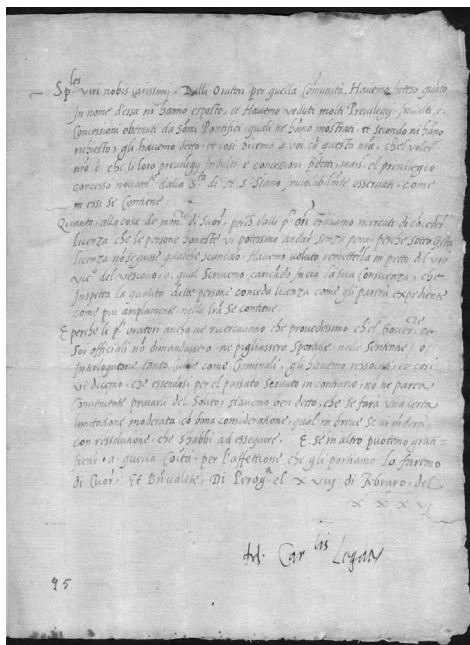 Sp.les viri nobis Carissimi. Dalli Oratori per quella Cõmunità, Havemo inteso quãto
In nome d'essa ni hanno esposto, et Havemo veduti molti Previlegij, Indulti e
Concessioni obtenuti da Sõmi Pontifici, quali ne hãno mostrati et secondo ni hãno
richiesto, gli havemo detto, et cosi dicemo a voi cõ questa nrã, che'l voler
nrõ è, che li loro previlegij Indulti e concessioni p.detti, mass.e el previlegio
concesso novam.te dalla S.tà di N. S. siano Inviolabilmẽte osservati, come
in essi se Contiene
Quanto alla cosa de mon.rij di Suore, perche dalli p.ti ori eravamo ricercati di
licenza che le persone honeste vi potessino andar senza pena, perche sotto
licenza nõ seguisse qualche scandalo, Havemo voluto remetterla in petto del
Vic.o del Vescovo, al qual Scrivemo, caricãdo in ciò la sua Conscienza, che
Inspetta la qualità delle persone conceda licenza come gli parerà expediente
come piu amplamente nella lrã se contiene.
E perche li p.ti oratori ancho ne ricercavano che provedessimo che'l Gover.re
Soi officiali nõ dimandassero, ne pigliassero Sportule, nelle Sententie, o
Interlogutorie tanto Civile come Criminali, gli havemo resoluti, et cosi
vi dicemo, che essendosi per el passato servato in contrario, nõ ne pareva
Conveniente privarli del Solito, Havemo ben detto, che se farà una certa
limitatione moderata cõ bona consideratione, qual in breve se vi mãdarà,
con ressolutione, che s'habbi ad esseguire. E se in altro potemo grati-
ficar, a quella Cõità, per l'affettione che gli portiamo lo faremo
di Cuor. Et Benvalete. Di Perog.a el XVIJ di Febraro, del
XXXVJ
Car.lis Legat
95